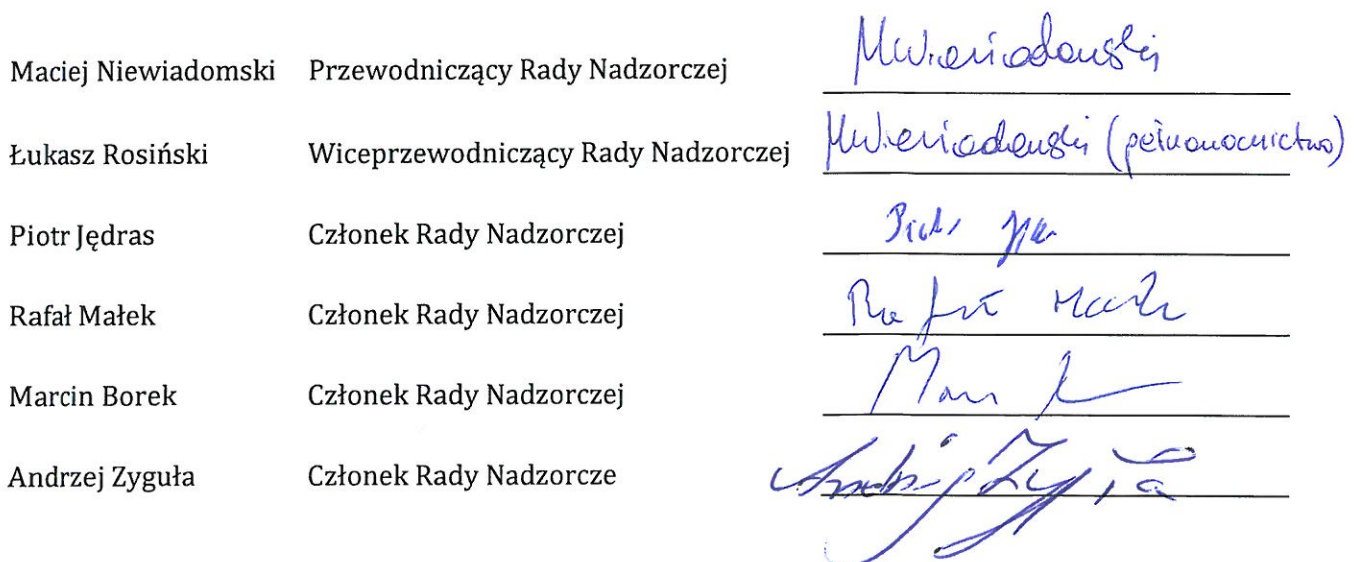 Maciej Niewiadomski Przewodniczący Rady Nadzorczej MNiewiadomski
Łukasz Rosiński Wiceprzewodniczący Rady Nadzorczej MNiewiadomski (pełnomocnictwo)
Piotr Jędras Członek Rady Nadzorczej Piotr
Rafał Małek Członek Rady Nadzorczej Rafał Małek
Marcin Borek Członek Rady Nadzorczej
Andrzej Zyguła Członek Rady Nadzorcze Andrzej Zyguła